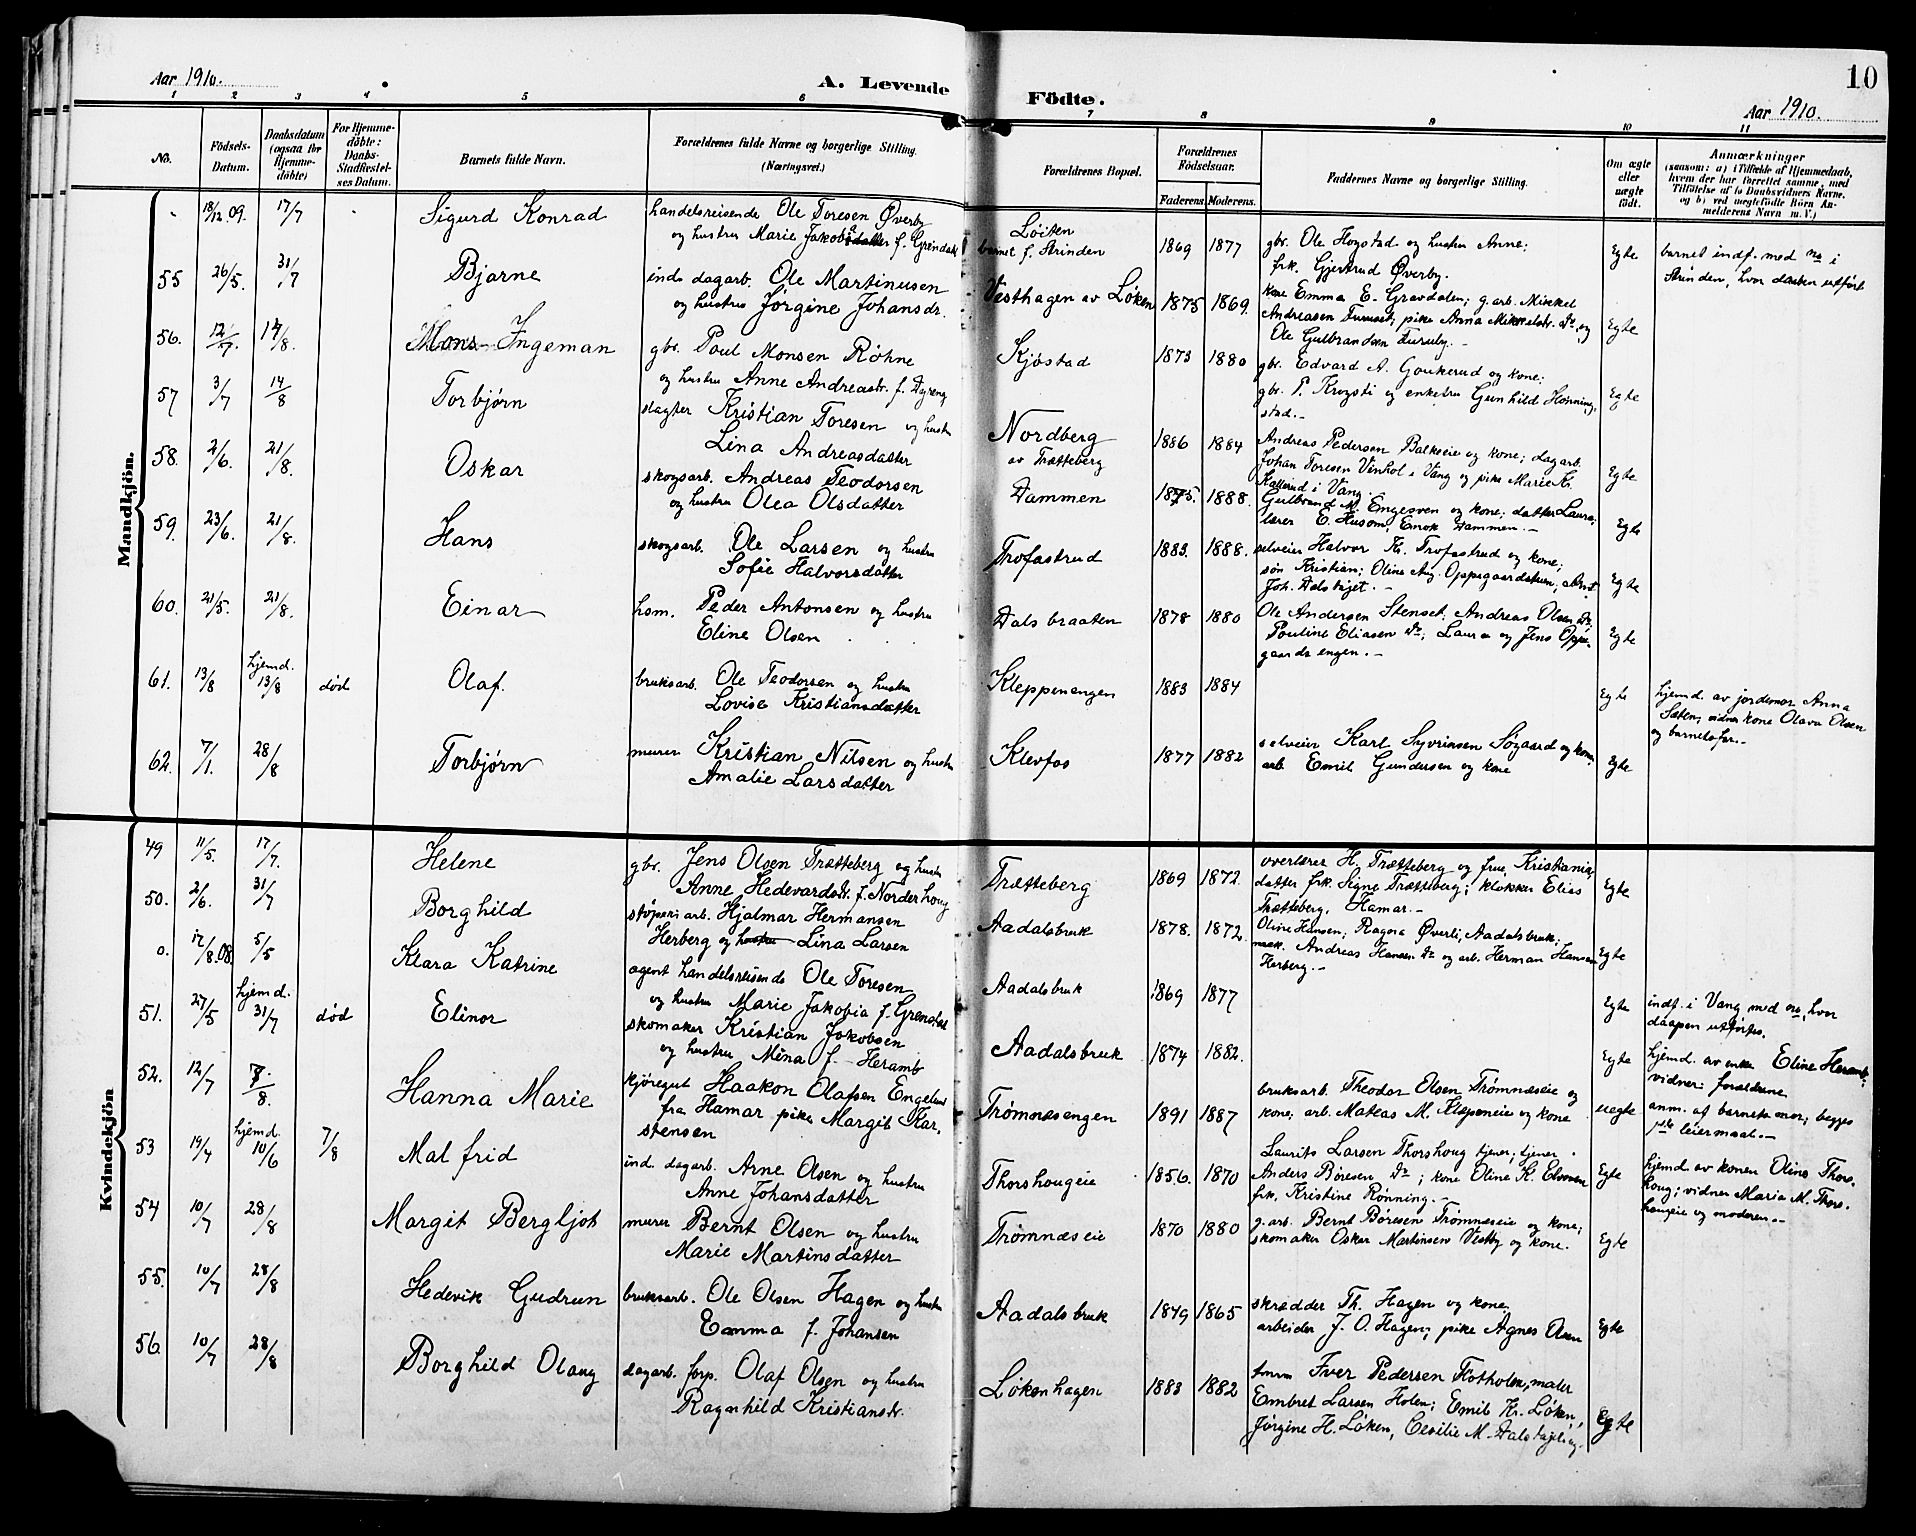 Aar 1910.
A. Levende
Födte.
Aar 1910.
10
1 2 3 4 5 6 7 8 9 10 11
No.
Födsels-
Datum.
Daabsdatum
(ogsaa for
Hjemme-
döbte)
For Hjemme-
döbte:
Daabs-
Stadfæstel-
ses Datum.
Barnets fulde Navn.
Forældrenes fulde Navne og borgerlige Stilling.
(Næringsvei.)
Forældrenes Bopæl.
Forældrenes
Födselsaar.
Faderens.
Moderens.
Faddernes Navne og borgerlige Stilling.
Om ægte
eller
uægte
födt.
Anmærkninger
(saasom: a) i Tilfælde af Hjemmedaab,
hvem der har forrettet samme, med
Tilföielse af to Daabsvidners Navne,
og b) ved uægtefödte Börn An-
melderens Navn m. V.)
Mandkjön.
18/12 09. 17/7 Sigurd Konrad
handelsreisende Ole Toresen Øverby
og hustru Marie Jakobsdatter f. Grendahl
Løiten
barnet f. Strinden
1869 1877
gbr. Ole Hogstad og hustru Anne;
frk. Gjertrud Øverby.
Egte
barnet indf. med no i
Strinden, hvor daaben utført
55 26/5. 31/7 Bjarne
inds. dagarb. Ole Martinusen
og hustru Jørgine Johansdr.
Vesthagen av Løken
1875 1869.
kone Emma E. Gravdalen; g. arb. Mikkel
Andreasen Furuset; pike Anna Mikkelsdr. do, og
Ole Gulbrandsen Furuby.-
Egte
56. 12/7. 14/8. Mons Ingeman
gbr. Poul Monsen Røhne
og hustru Anne Andreasdr. f. Dyreng
Kjøstad
1873 1880
gbr. Edvard A. Gaukerud og kone;
gbr. P. Krogsti og enkefru Gunhild Honning
stad.-
Egte
57 3/7 14/8 Torbjørn
slagter Kristian Toresen og hustru
Lina Andreasdatter
Nordberg
av Trætteberg
1886 1884
Andreas Pedersen Balkeie og kone; dagarb.
Johan Toresen Vinhol i Vang og pike Marie Kr.
Kallerud i Vang.
Egte
58. 2/6. 21/8. Oskar
skogsarb. Andreas Teodorsen
og hustru Olea Olsdatter
Dammen
1875. 1888.
Gulbrand M. Engesven og kone; datter Laura;
lærer E. Husom; Enok Dammen.-
Egte
59. 23/6. 21/8. Hans
skogsarb. Ole Larsen og hustru
Sofie Halvorsdatter
Trofastrud
1883. 1888.
selveier Halvor Kr. Trofastrud og kone;
søn Kristian; Oline Aug. Oppegaardstun;
Joh. Dalshaget.-
Egte
60. 21/5. 21/8. Einar
hsm. Peder Antonsen og hustru
Eline Olsen
Dals braaten
1878 1880
Ole Andersen Stenset; Andreas Olsen do;
Pouline Eliasen do; Laura og Jens Oppe-
gaards engen.-
Egte
61. 13/8 hjemd. 13/8 død Olaf.
bruksarb. Ole Teodorsen og hustru
Lovise Kristiansdatter
Kleppenengen
1883 1884
Egte
hjemd. av jordemor Anna
Sæten; vidner kone Olava Olsen
og barnets far.-
62. 7/1. 28/8 Torbjørn
murer Kristian Nilsen og hustru
Amalie Larsdatter
Klevfos
1877 1882
selveier Karl Syvrinsen Søgaard og kone
arb. Emil Gundersen og kone
Egte
Kvindekjön
49 11/5. 17/7. Helene
gbr. Jens Olsen Trætteberg og hustru
Anne Hedevardsdr. f. Norderhoug
Trætteberg
1869 1872.
overlærer H. Trætteberg og frue, Kristiania
datter frk. Signe Trætteberg; klokker Elias
Trætteberg, Hamar.-
Egte
50. 2/6. 31/7 Borghild
støperiarb. Hjalmar Hermansen
Herberg og hustru Lina Larsen
Aadalsbruk
1878. 1872.
Oline Hansen; Ragna Øverli, Aadalsbruk;
mask. Andreas Hansen do og arb. Herman Hansen
Herberg.-
Egte
o. 12/8.08. 5/5 Klara Katrine
agent handelsreisende Ole Toresen
og hustru Marie Jakobia f. Grendal
Aadalsbruk
1869 1877
Egte
indf. i Vang med no, hvor
daapen utførtes.
51. 27/5 hjemd. 31/7 død Elinor
skomaker Kristian Jakobsen
og hustru Mina f. Heramb
Aadalsbruk
1874 1882.
Egte
hjemd. av enke Eline Heramb;
vidner: forældrene
52. 12/7 7/8. Hanna Marie
kjøregut Haakon Olafsen Engelund
fra Hamar pike Margit Kar-
stensen
Trømnæsengen
1891 1887
bruksarb. Theodor Olsen Trømnæseie og
kone; arb. Mateas M. Klæpeneie og kone
uegte
anm. af barnets mor; begges
1ste leiermaal.-
53 19/4 hjemd. 10/6 7/8 Malfrid
ind. dagarb. Arne Olsen og hustru
Anne Johansdatter
Thorshougeie
1856. 1870
Laurits Larsen Thorshoug tjener; tjener
Anders Børesen do; kone Oline K. Elvoven
frk. Kristine Rønning.-
Egte
hjemd. av konen Oline Thors-
houg; vidner Maria M. Thors-
hougeie og moderen.-
54 10/7 28/8 Margit Bergljot
murer Bernt Olsen og hustru
Marie Martinsdatter
Trømnæseie
1870 1880
g. arb. Bernt Børesen Trømnæseie og kone;
skomaker Oskar Martinsen Vestby og kone.
Egte
55. 10/7 28/8 Hedevik Gudrun
bruksarb. Ole Olsen Hagen og hustru
Emma f. Johansen
Aadalsbruk
1849 1865
skrædder Th. Hagen og kone
arbeider J. O. Hagen; pike Agnes Olsen
Egte
56. 10/7 28/8 Borghild Olaug
dagarb. forp. Olaf Olsen og hustru
Ragnhild Kristiansdr.
Løkenhagen
1883 1882
Iver Pedersen Flotholen, maler
Embret Larsen Holen; Emil Kr. Løken;
Jørgine H. Løken, Cecilie M.
Egte